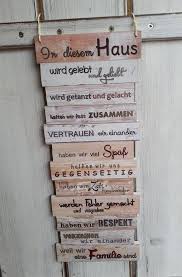 In diesem Haus
wird gelebt und geliebt
wird getanzt und gelacht
halten wir fest ZUSAMMEN
VERTRAUEN wir einander
haben wir viel Spaß
helfen wir uns
GEGENSEITIG
haben wir Zeit
werden Fehler gemacht
und vergeben
haben wir RESPEKT
VERZEIHEN
wir einander
weil wir
eine Familie sind